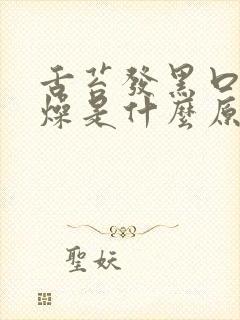 舌苔發黑口
燥是什麼原
聖妖